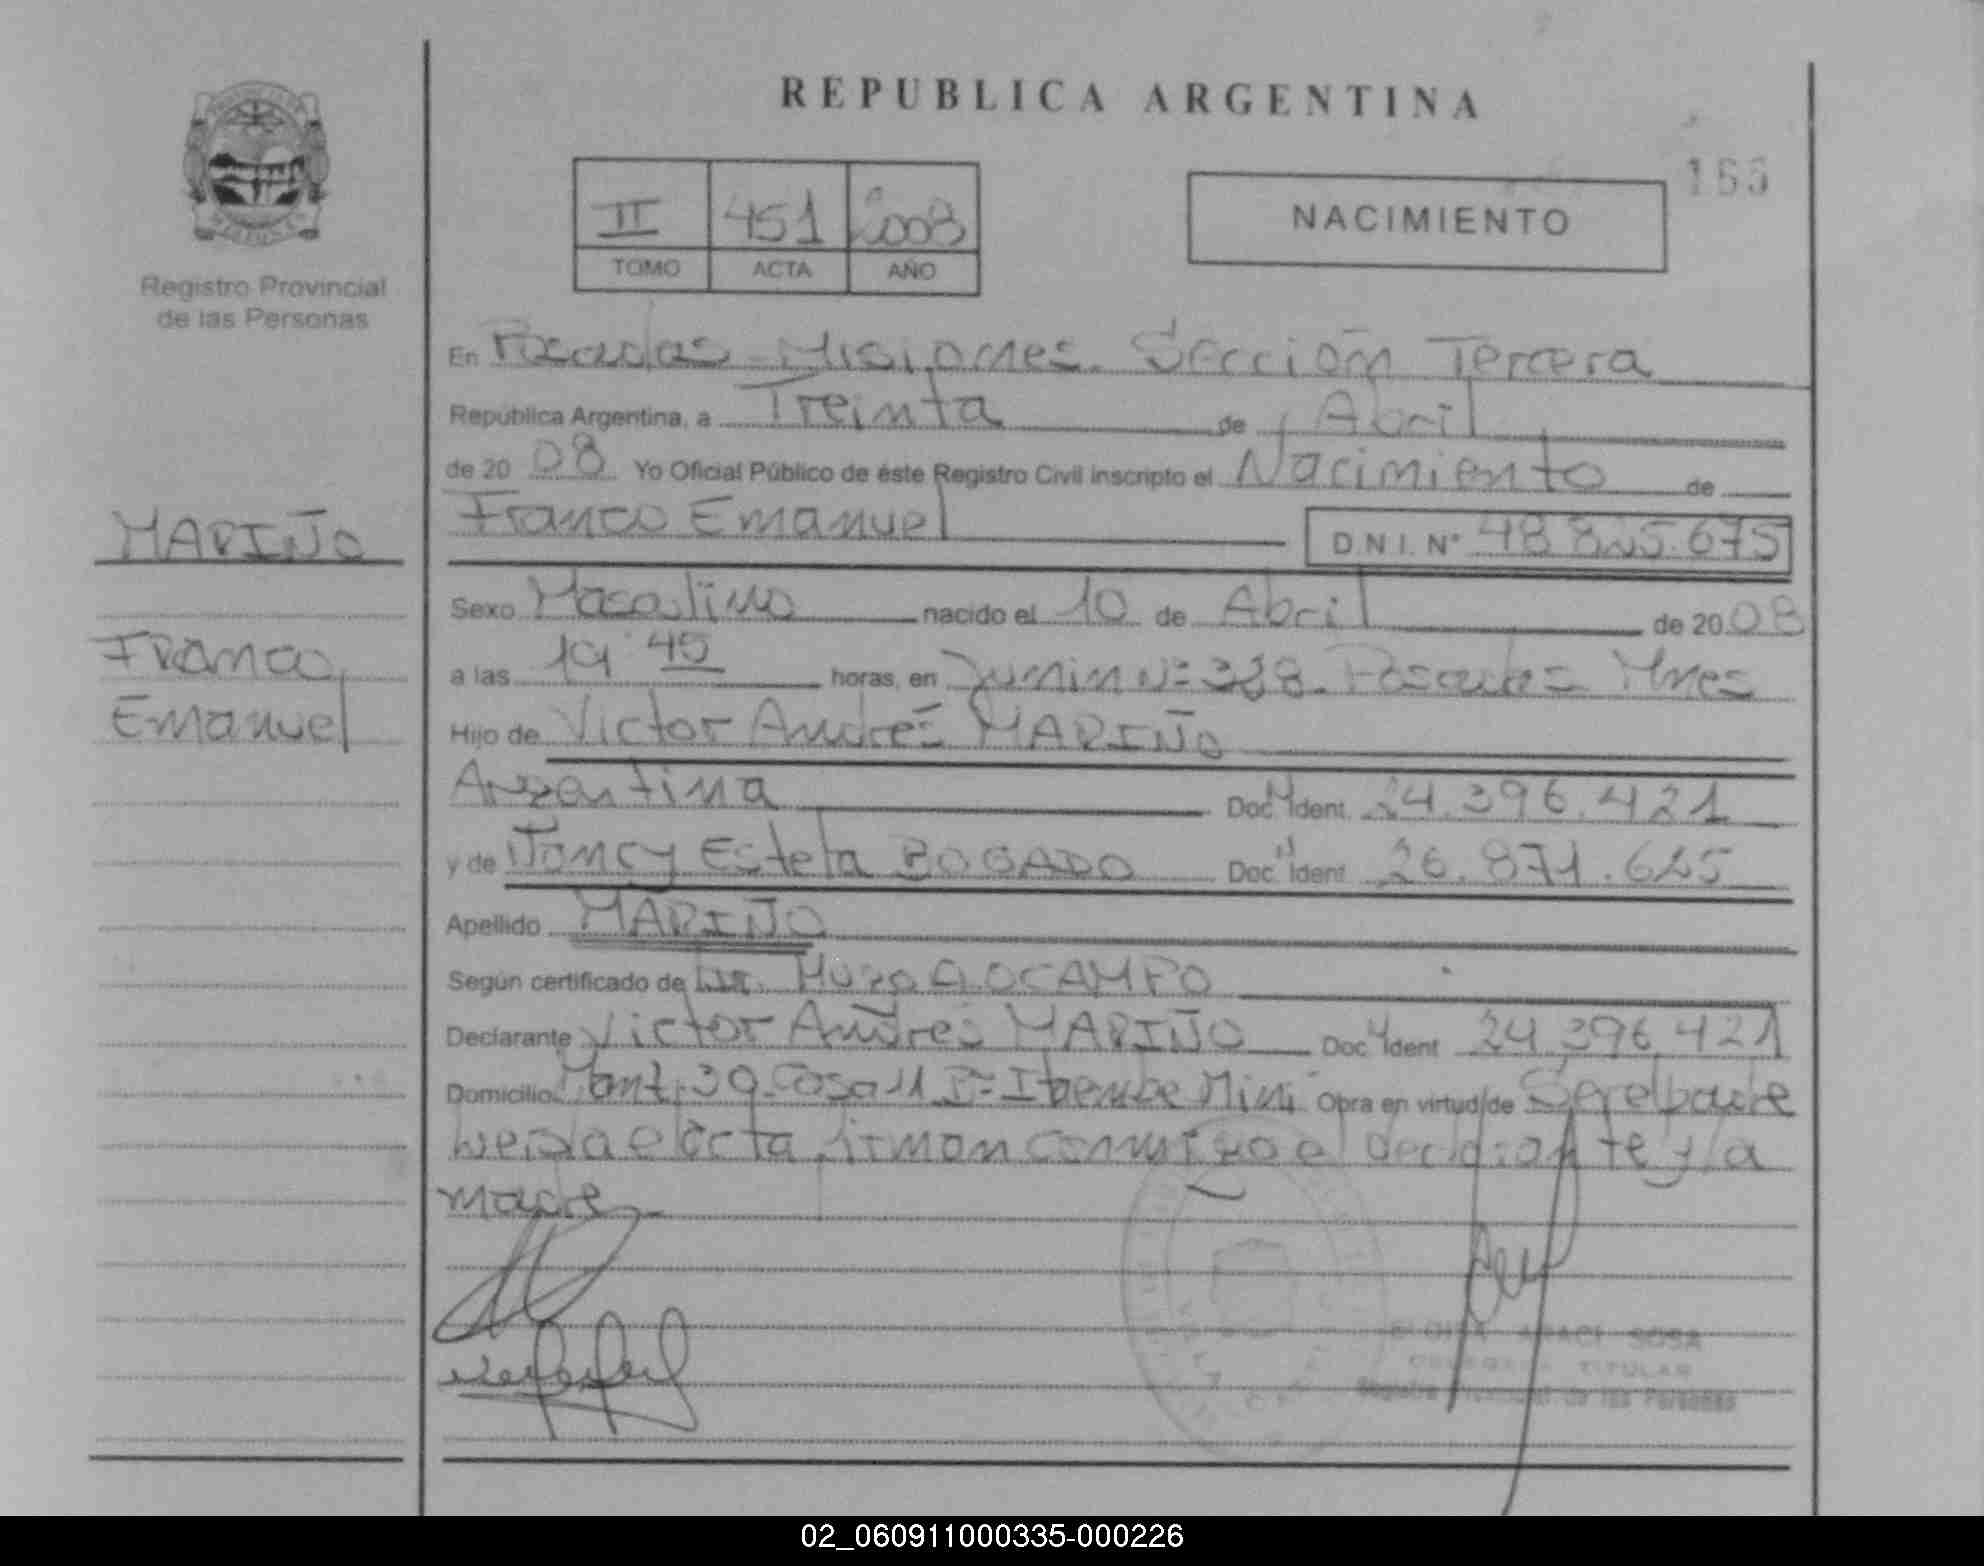 REPUBLICA ARGENTINA
166
II 451 2008
TOMO ACTA AÑO
NACIMIENTO
Registro Provincial
de las Personas
MARIÑO
Franco
Emanuel
En Posadas - Misiones. Sección Tercera
República Argentina, a Treinta de Abril
de 20 08 Yo Oficial Público de éste Registro Civil inscripto el Nacimiento de
Franco Emanuel D.N.I. N° 48 825.675
Sexo Masculino nacido el 10 de Abril de 20 08
a las 19 45 horas, en Junin Nº 328. Posadas = Mnes
Hijo de Victor Andrés MARIÑO
Argentina Doc. Ident. 24.396.421
y de Nancy Estela BOGADO Doc. Ident 26.871.625
Apellido MARIÑO
Según certificado de Dr. Hugo A. OCAMPO
Declarante Victor Andres MARIÑO Doc. Ident 24.396.421
Domicilio 39 Casa 11 Bº Itaembe Mini Obra en virtud de Ser el padre
Leida el acta firman conmigo el declarante y la
madre
SOSA
TITULAR
Registro Provincial de las Personas
02_060911000335-000226